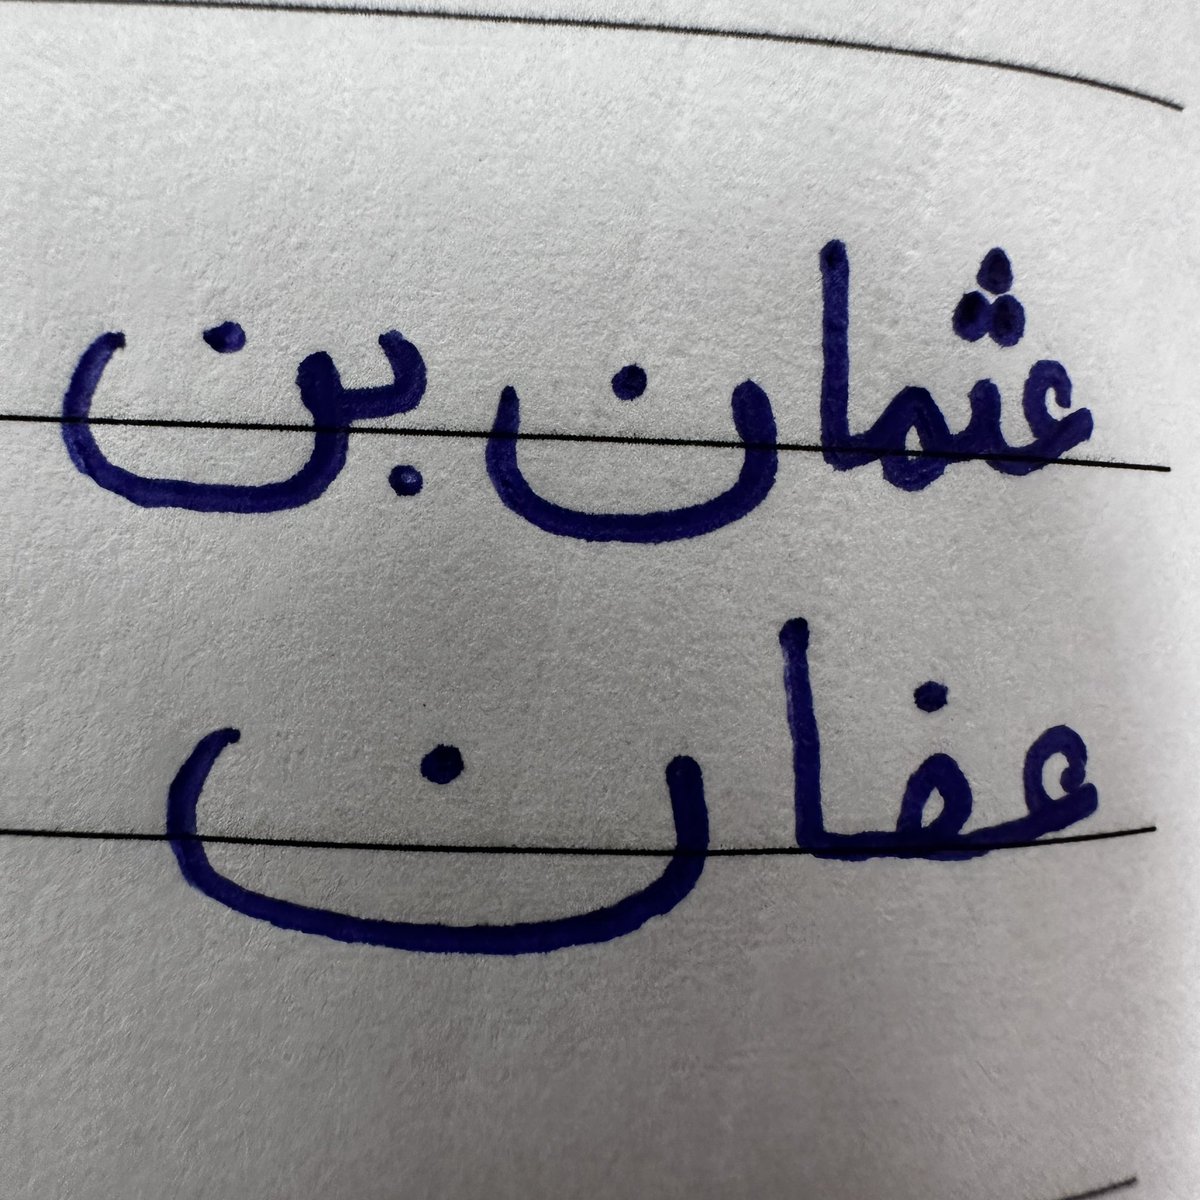 عثمان بن
عفان